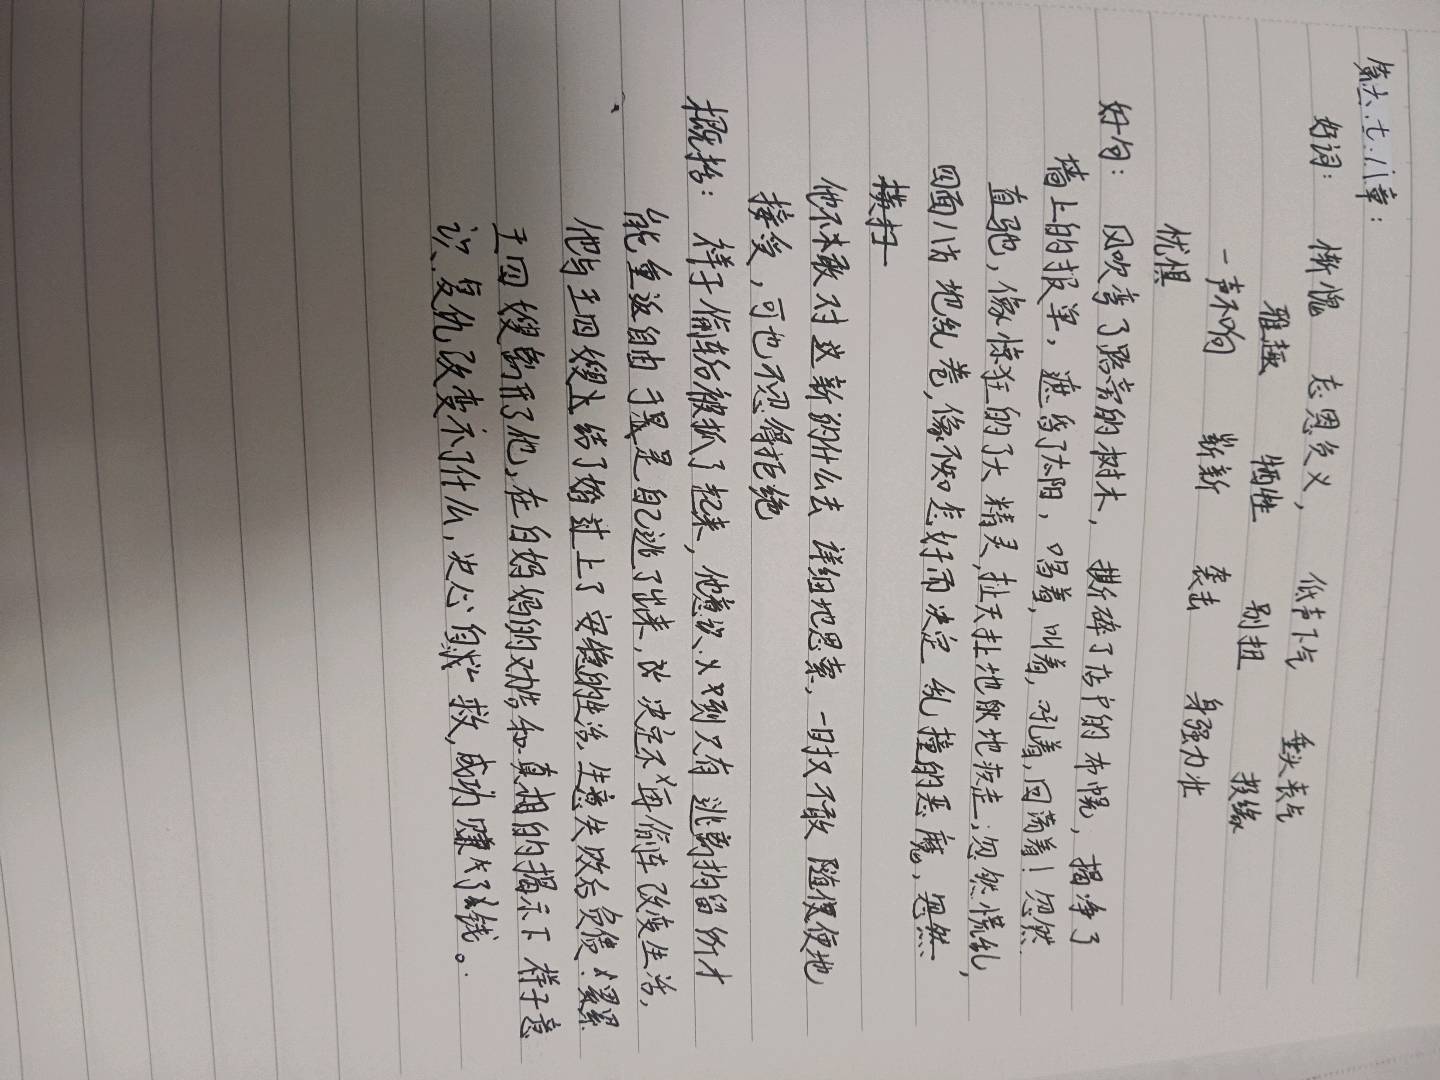 第六.七.八章:
好词: 惭愧 忘恩负义, 低声下气 垂头丧气
雅趣 牺牲 别扭 投缘
一声不吭 崭新 袭击 身强力壮
忧惧
好句: 风吹弯了路旁的树木, 撕碎了店户的布幌, 揭净了
墙上的报单, 遮昏了太阳, 唱着, 叫着, 吼着, 回荡着! 忽然
直驰, 像惊狂的了大精灵, 扯天扯地的疾走; 忽然慌乱,
四面八方地乱卷, 像不知怎好而决定乱撞的恶魔, 忽然
横扫
他不敢对这新的什么去详细地思索, 一时又不敢随便便地
接受, 可也不忍得拒绝
概括: 祥子偷车后被抓了起来, 他意识到只有逃离拘留所才
能重返自由于是自己逃了出来, 决定不再偷车改变生活,
他与王四嫂结了婚过上了安稳的生活, 生意失败后负债累累
王四嫂离开了他, 在白妈妈的劝告和真相的揭示下祥子意
识, 复仇改变不了什么, 决心自救, 成功赚了钱。